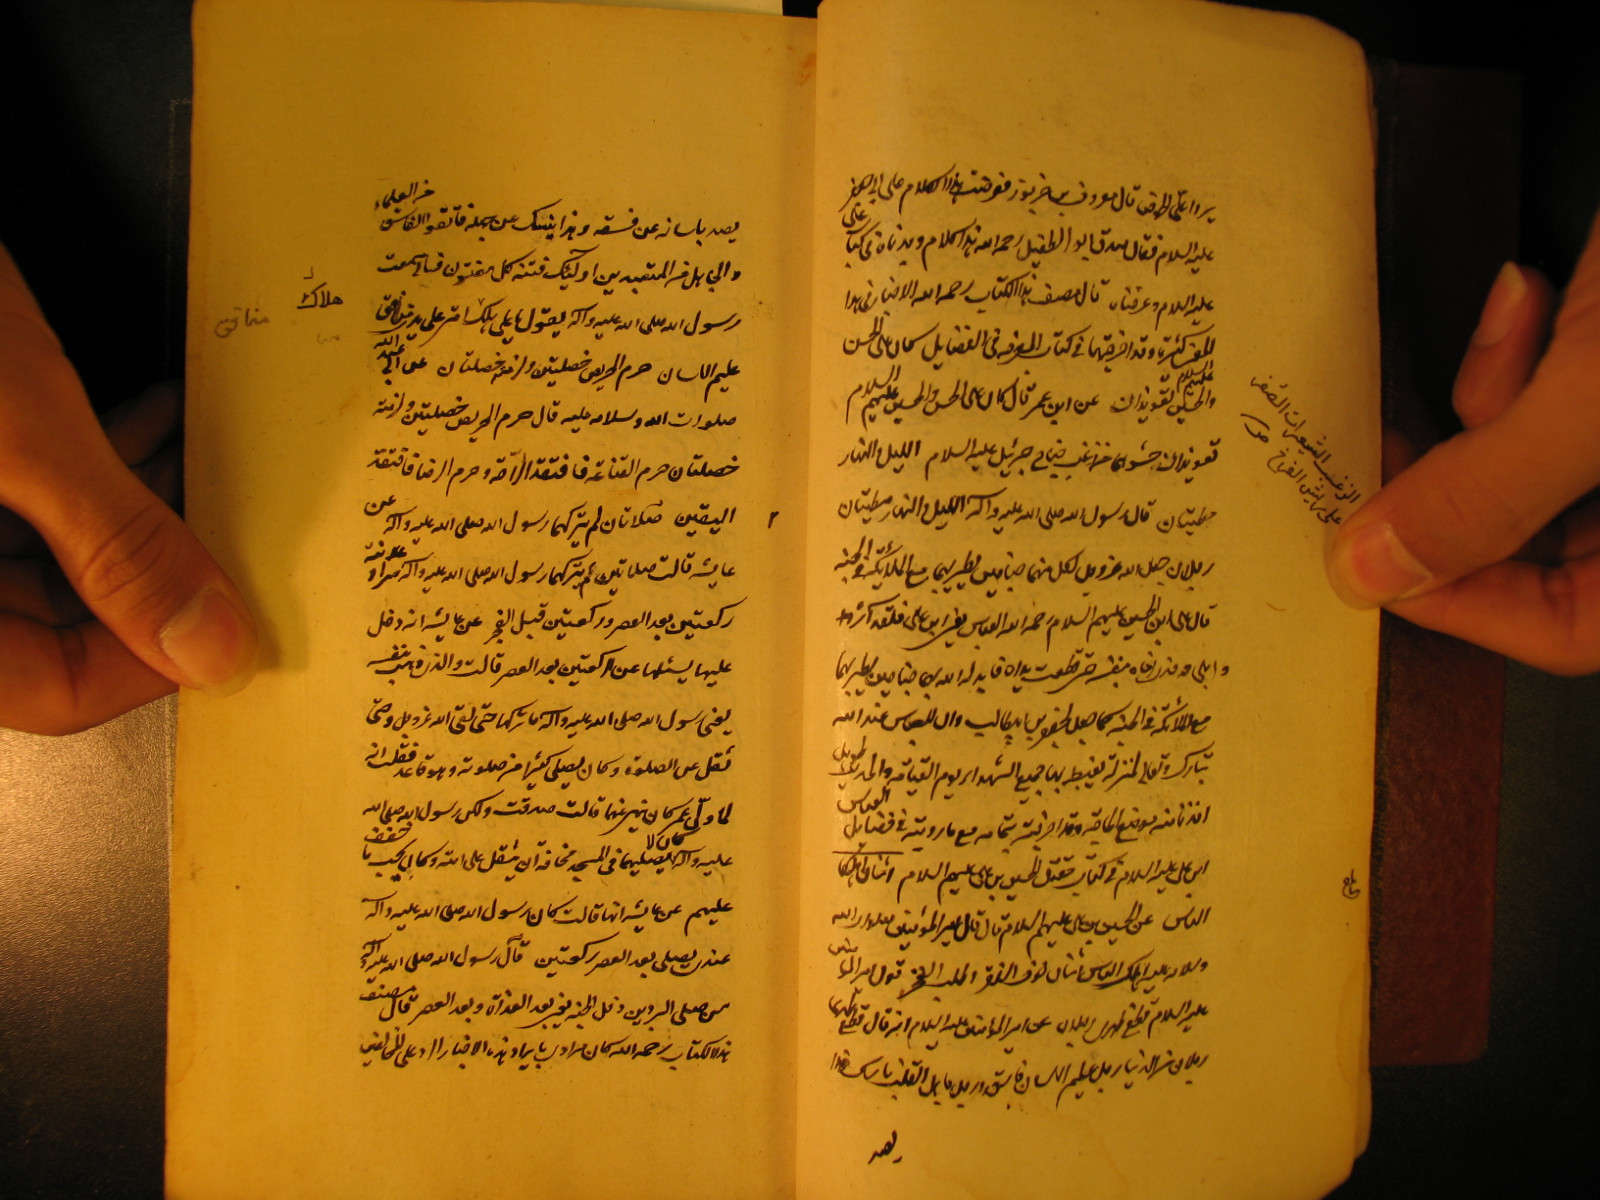 يردا على الحوض قال معروف بن خربوذ فعرضت هذا الكلام على ابي جعفر
عليه السلام فقال صدق ابو الطفيل رحمه الله هذا الكلام وجدناه في كتاب على
عليه السلام وعرفناه قال مصنف هذا الكتاب رحمه الله الاخبار في هذا
المعنى كثيرة وقد اخرجتها في كتاب المعرفة في الفضايل كان على الحسن
والحسين عليهم السلام تعويذان عن ابن عمر قال كان على الحسن والحسين عليهم السلام
تعويذان حشوهما من زغب جناح جبرئيل عليه السلام الليل والنهار
مطيتان قال رسول الله صلى الله عليه واله الليل والنهار مطيتان
رجلان جعل الله عز وجل لكل منهما جناحين يطير بهما مع الملائكة في الجنة
قال على ابن الحسين عليهم السلام رحم الله العباس يعني ابن على فلقد آثر
وابلى وفدى اخاه بنفسه حتى قطعت يداه فابدله الله بهما جناحين يطير بهما
مع الملائكة في الجنة كما جعل لجعفر بن ابيطالب وان للعباس عند الله
تبارك وتعالى لمنزلة يغبطه بها جميع الشهداء يوم القيامة والحديث طويل
اخذنا منه موضع الحاجة وقد اخرجته بتمامه مع ما رويته في فضايل العباس
ابن على عليه السلام في كتاب مقتل الحسين بن على عليهم السلام اثنان اهلكا
الناس عن الحسين بن على عليهم السلام قال قال امير المؤمنين صلوات الله
وسلامه عليه اهلك الناس اثنان خوف الفقر وطلب الفخر قول امير المؤمنين
عليه السلام قطع ظهري رجلان عن امير المؤمنين عليه السلام انه قال قطع ظهري
رجلان من الدنيا رجل عليم اللسان فاسق ورجل جاهل القلب ناسك هذا
يصد
الزغب الشعيرات الصفر
على ريش الفرخ ص
يصد بلسانه عن فسقه وهذا بنسكه عن جهله فاتقوا الفاسق من العلماء
والجاهل من المتعبدين اولئك فتنة كل مفتون فاني سمعت
رسول الله صلى الله عليه واله يقول يا على هلاك امتي على يدي منافق
عليم اللسان حرم الحريص خصلتين ولزمته خصلتان عن ابي عبد الله
صلوات الله وسلامه عليه قال حرم الحريص خصلتين ولزمته
خصلتان حرم القناعة فافتقد الراحة وحرم الرضا فافتقد
اليقين صلاتان لم يتركهما رسول الله صلى الله عليه واله عن
عايشه قالت صلاتين لم يتركهما رسول الله صلى الله عليه واله سرا وعلانية
ركعتين بعد العصر وركعتين قبل الفجر عن عايشه انه دخل
عليها يسئلها عن الركعتين بعد العصر قالت والذي ذهب بنفسه
يعني رسول الله صلى الله عليه واله ما تركهما حتى لقى الله عز وجل وحتى
ثقل عن الصلوة وكان يصلي كثيرا من صلوته وهو قاعد فقلت انه
لما ولى عمر كان ينهى عنهما قالت صدقت ولكن رسول الله صلى الله
عليه واله كان لا يصليهما في المسجد مخافة ان يثقل على امته وكان يحب ما خفف
عليهم عن عايشه انها قالت كان رسول الله صلى الله عليه واله
عندي يصلي بعد العصر ركعتين قال رسول الله صلى الله عليه واله
من صلى البردين دخل الجنة يعني بعد الغداة وبعد العصر قال مصنف
هذا الكتاب رحمه الله كان مرادي بايراد هذه الاخبار الرد على المخالفين
هلاك
منافق